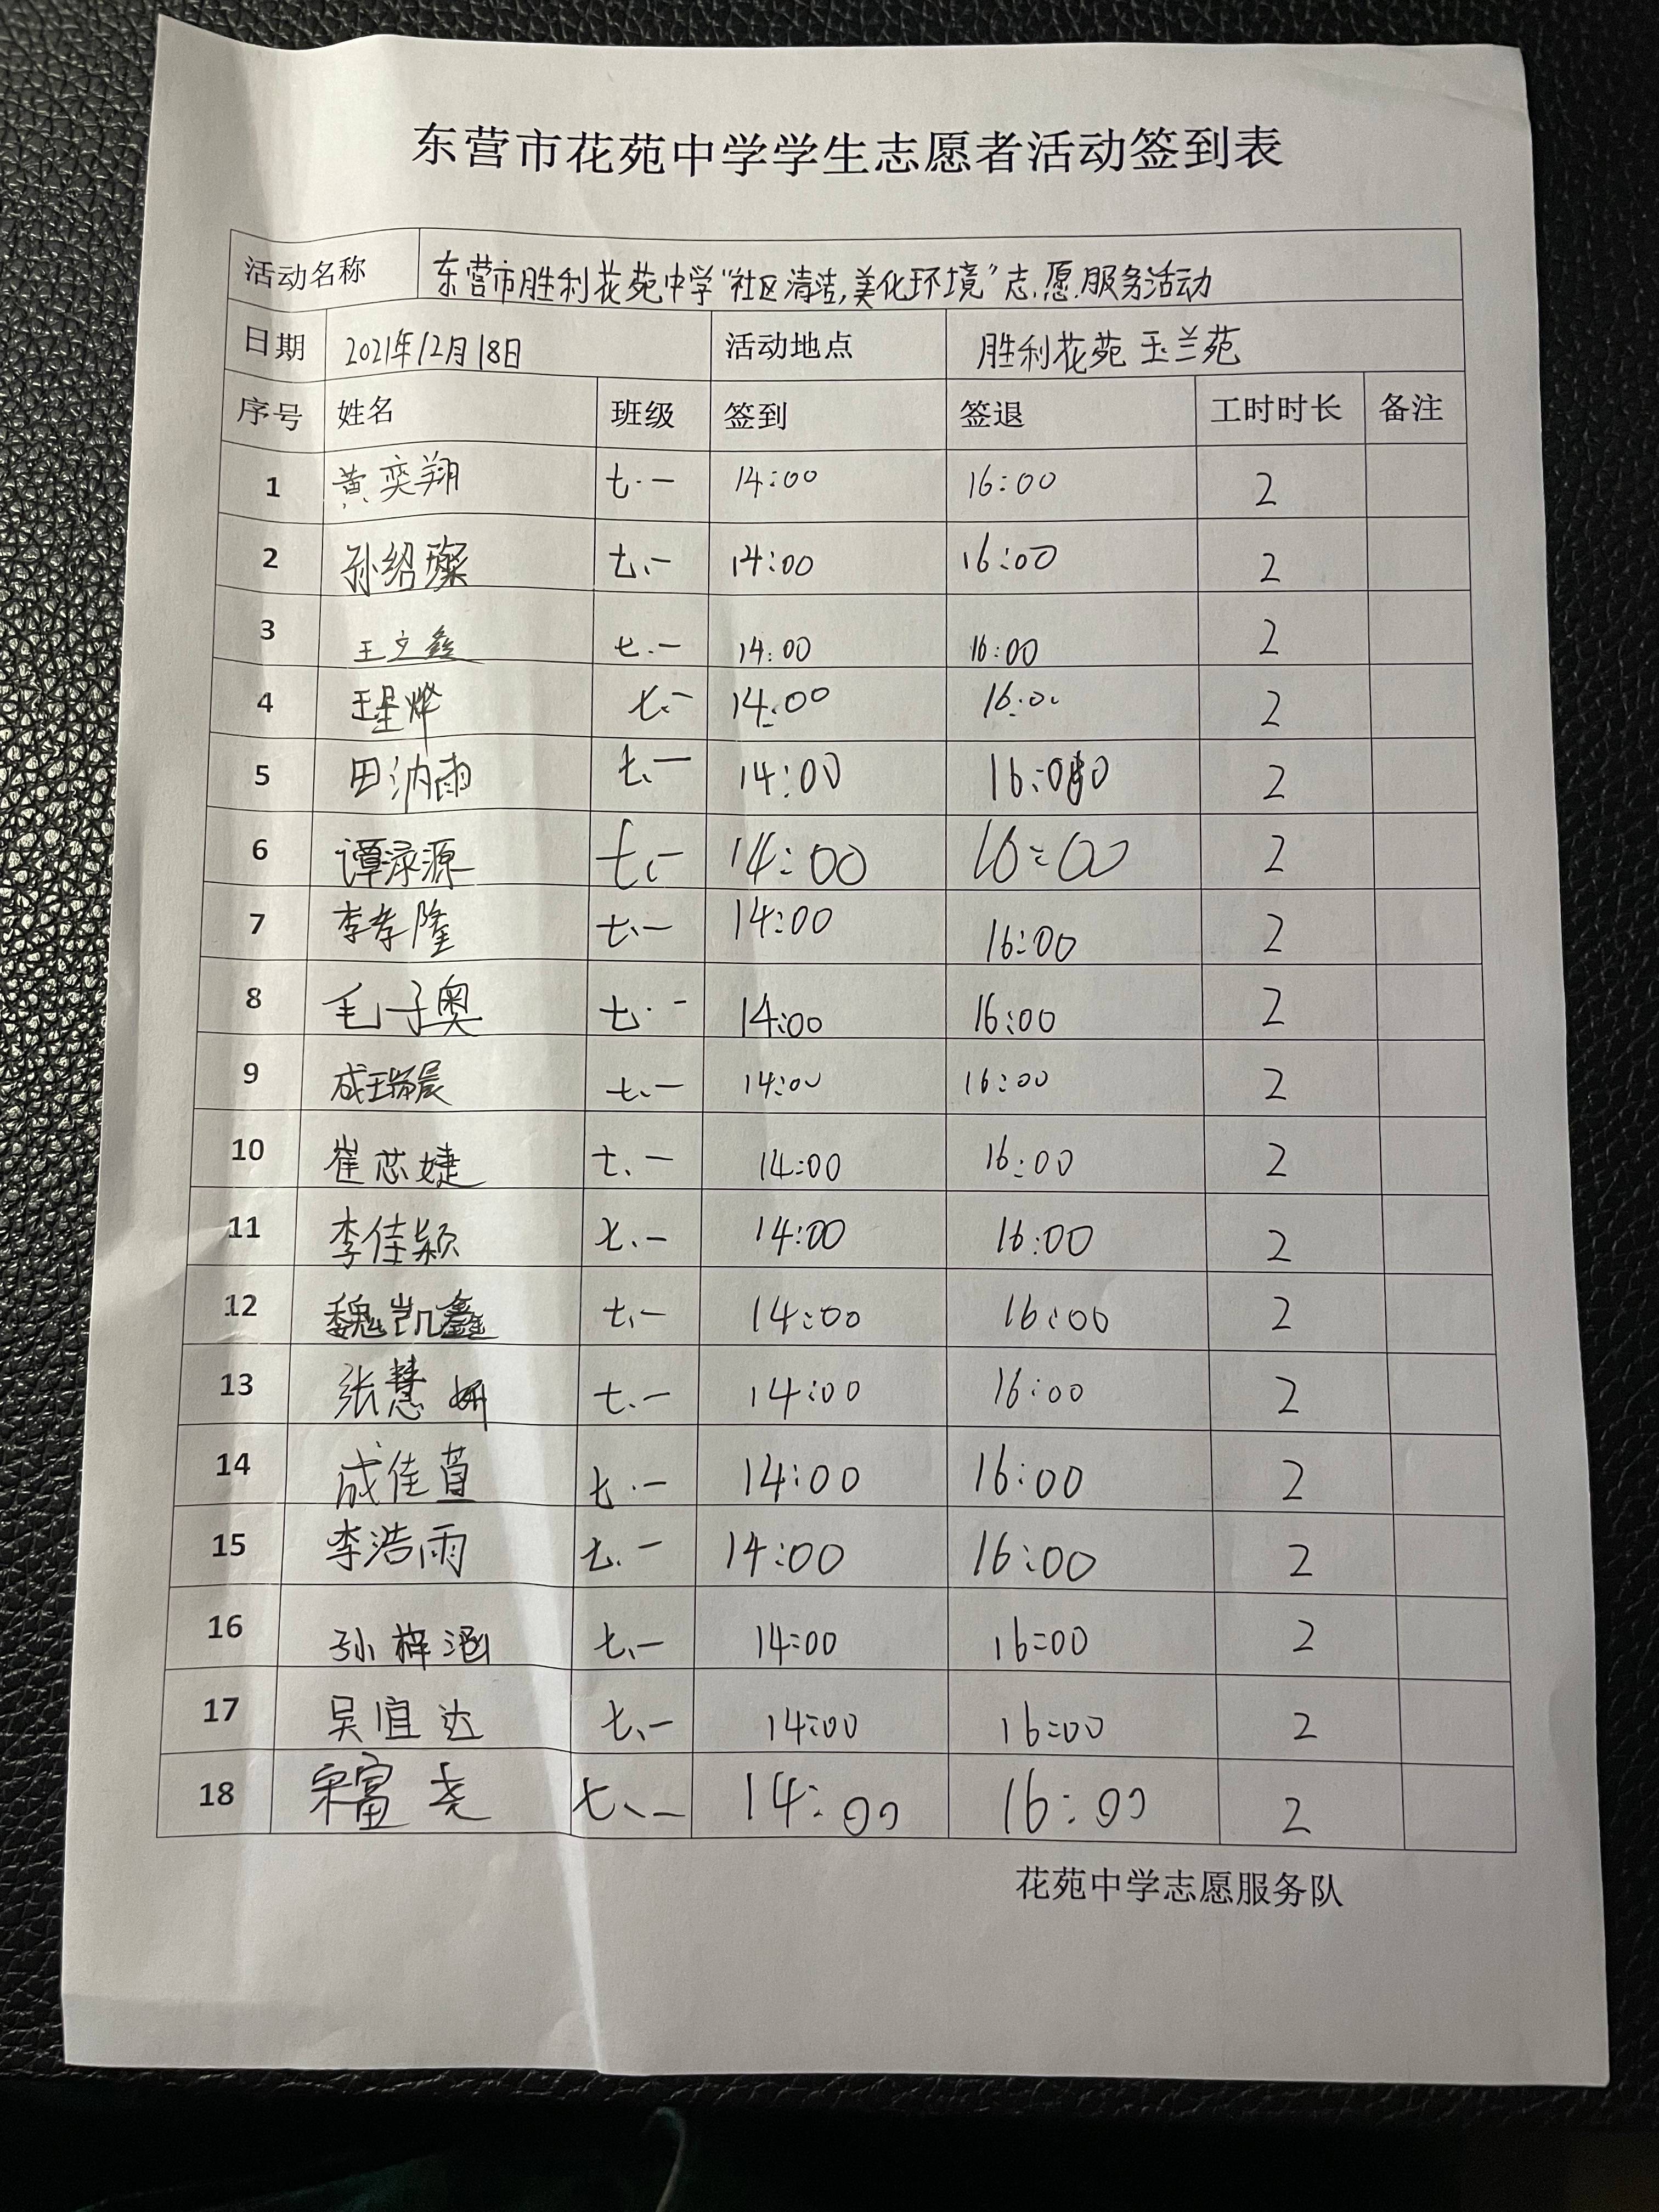 东营市花苑中学学生志愿者活动签到表
活动名称 东营市胜利花苑中学“社区清洁,美化环境”志愿服务活动
日期 2021年12月18日 活动地点 胜利花苑 玉兰苑
序号 姓名 班级 签到 签退 工时时长 备注
1 黄奕翔 七.一 14:00 16:00 2
2 孙绍璨 七.一 14:00 16:00 2
3 王文鑫 七.一 14:00 16:00 2
4 王星烨 七.一 14:00 16:00 2
5 田汭雨 七.一 14:00 16:00 2
6 谭渌源 七.一 14:00 16:00 2
7 李孝隆 七.一 14:00 16:00 2
8 毛子奥 七.一 14:00 16:00 2
9 成瑞晨 七.一 14:00 16:00 2
10 崔芯婕 七.一 14:00 16:00 2
11 李佳颖 七.一 14:00 16:00 2
12 魏凯鑫 七.一 14:00 16:00 2
13 张慧妍 七.一 14:00 16:00 2
14 成佳萱 七.一 14:00 16:00 2
15 李浩雨 七.一 14:00 16:00 2
16 孙梓涵 七.一 14:00 16:00 2
17 吴宜达 七.一 14:00 16:00 2
18 宋富尧 七.一 14:00 16:00 2
花苑中学志愿服务队